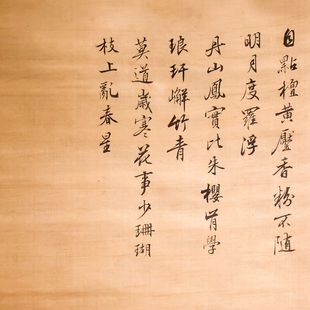 自點檀黃壓香粉不隨
明月度羅浮
丹山鳳實比朱櫻肯學
琅玕嶰竹青
莫道嵗寒花事少珊瑚
枝上亂春星